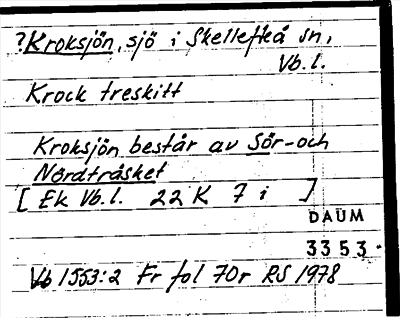 ?Kroksjön, sjö i Skellefteå sn,
Vb.l.
Krock treskitt
Kroksjön består av Sör- och
Nordträsket
[ Ek Vb.l. 22 K 7 i ]
DAUM
3353
Vb 1553:2 Fr fol 70r RS 1978